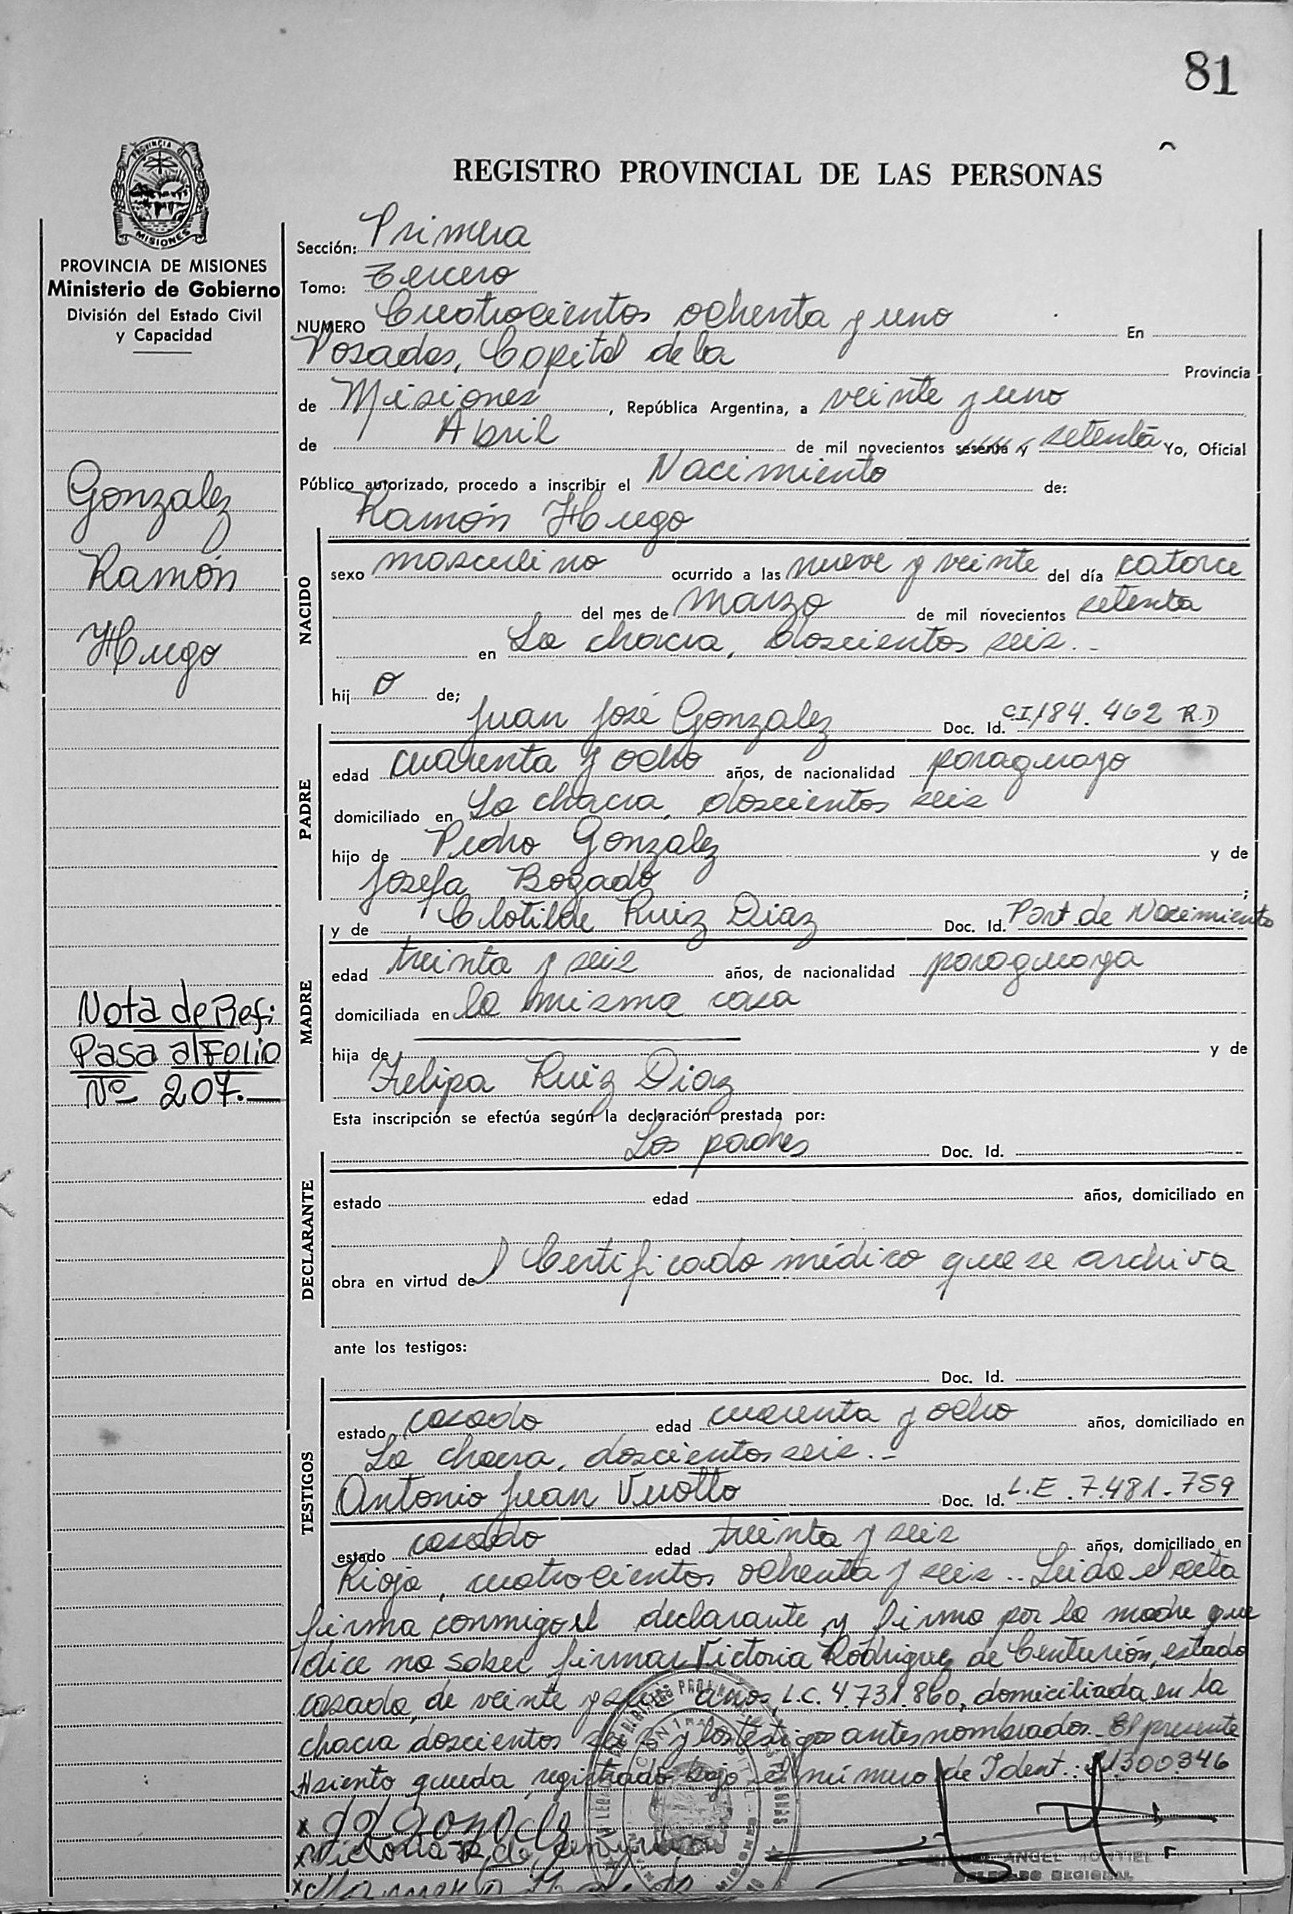 81
REGISTRO PROVINCIAL DE LAS PERSONAS
PROVINCIA DE MISIONES
PROVINCIA DE MISIONES
Ministerio de Gobierno
División del Estado Civil
y Capacidad
Gonzalez
Ramón
Hugo
Nota de Ref:
Pasa al Folio
Nº 207.—
Sección: Primera
Tomo: Tercero
NUMERO Cuatrocientos ochenta y uno En
Posadas, Capital de la Provincia
de Misiones, República Argentina, a veinte y uno
de Abril de mil novecientos sesenta y setenta Yo, Oficial
Público autorizado, procedo a inscribir el Nacimiento de:
Ramón Hugo
NACIDO
sexo masculino ocurrido a las nueve y veinte del día catorce
del mes de marzo de mil novecientos setenta
en La chacra, doscientos seis.-
hij o de;
Juan José Gonzalez Doc. Id. C.I. 184.462 R.D
PADRE
edad cuarenta y ocho años, de nacionalidad paraguayo
domiciliado en La chacra, doscientos seis
hijo de Pedro Gonzalez y de
Josefa Bogado;
y de Clotilde Ruiz Diaz Doc. Id. Part. de Nacimiento
MADRE
edad treinta y seis años, de nacionalidad paraguaya
domiciliada en la misma casa
hija de y de
Felipa Ruiz Diaz
Esta inscripción se efectúa según la declaración prestada por:
Los padres Doc. Id.
DECLARANTE
estado edad años, domiciliado en
obra en virtud de) Certificado médico que se archiva
ante los testigos:
Doc. Id.
TESTIGOS
estado casado edad cuarenta y ocho años, domiciliado en
La chacra, doscientos seis.-
Antonio Juan Vuotto Doc. Id. L.E. 7.481.759
estado casado edad treinta y seis años, domiciliado en
Rioja, cuatrocientos ochenta y seis.. Leida el acta
firma conmigo el declarante y firma por la madre que
dice no saber firmar Victoria Rodriguez de Centurión, estado
casada, de veinte y años, L.C. 4.731.860, domiciliada en la
chacra doscientos seis y los testigos antes nombrados. El presente
Asiento queda registrado bajo el número de Ident.: 21.300346
MIGUEL ANGEL MONTIEL
DELEGADO REGIONAL